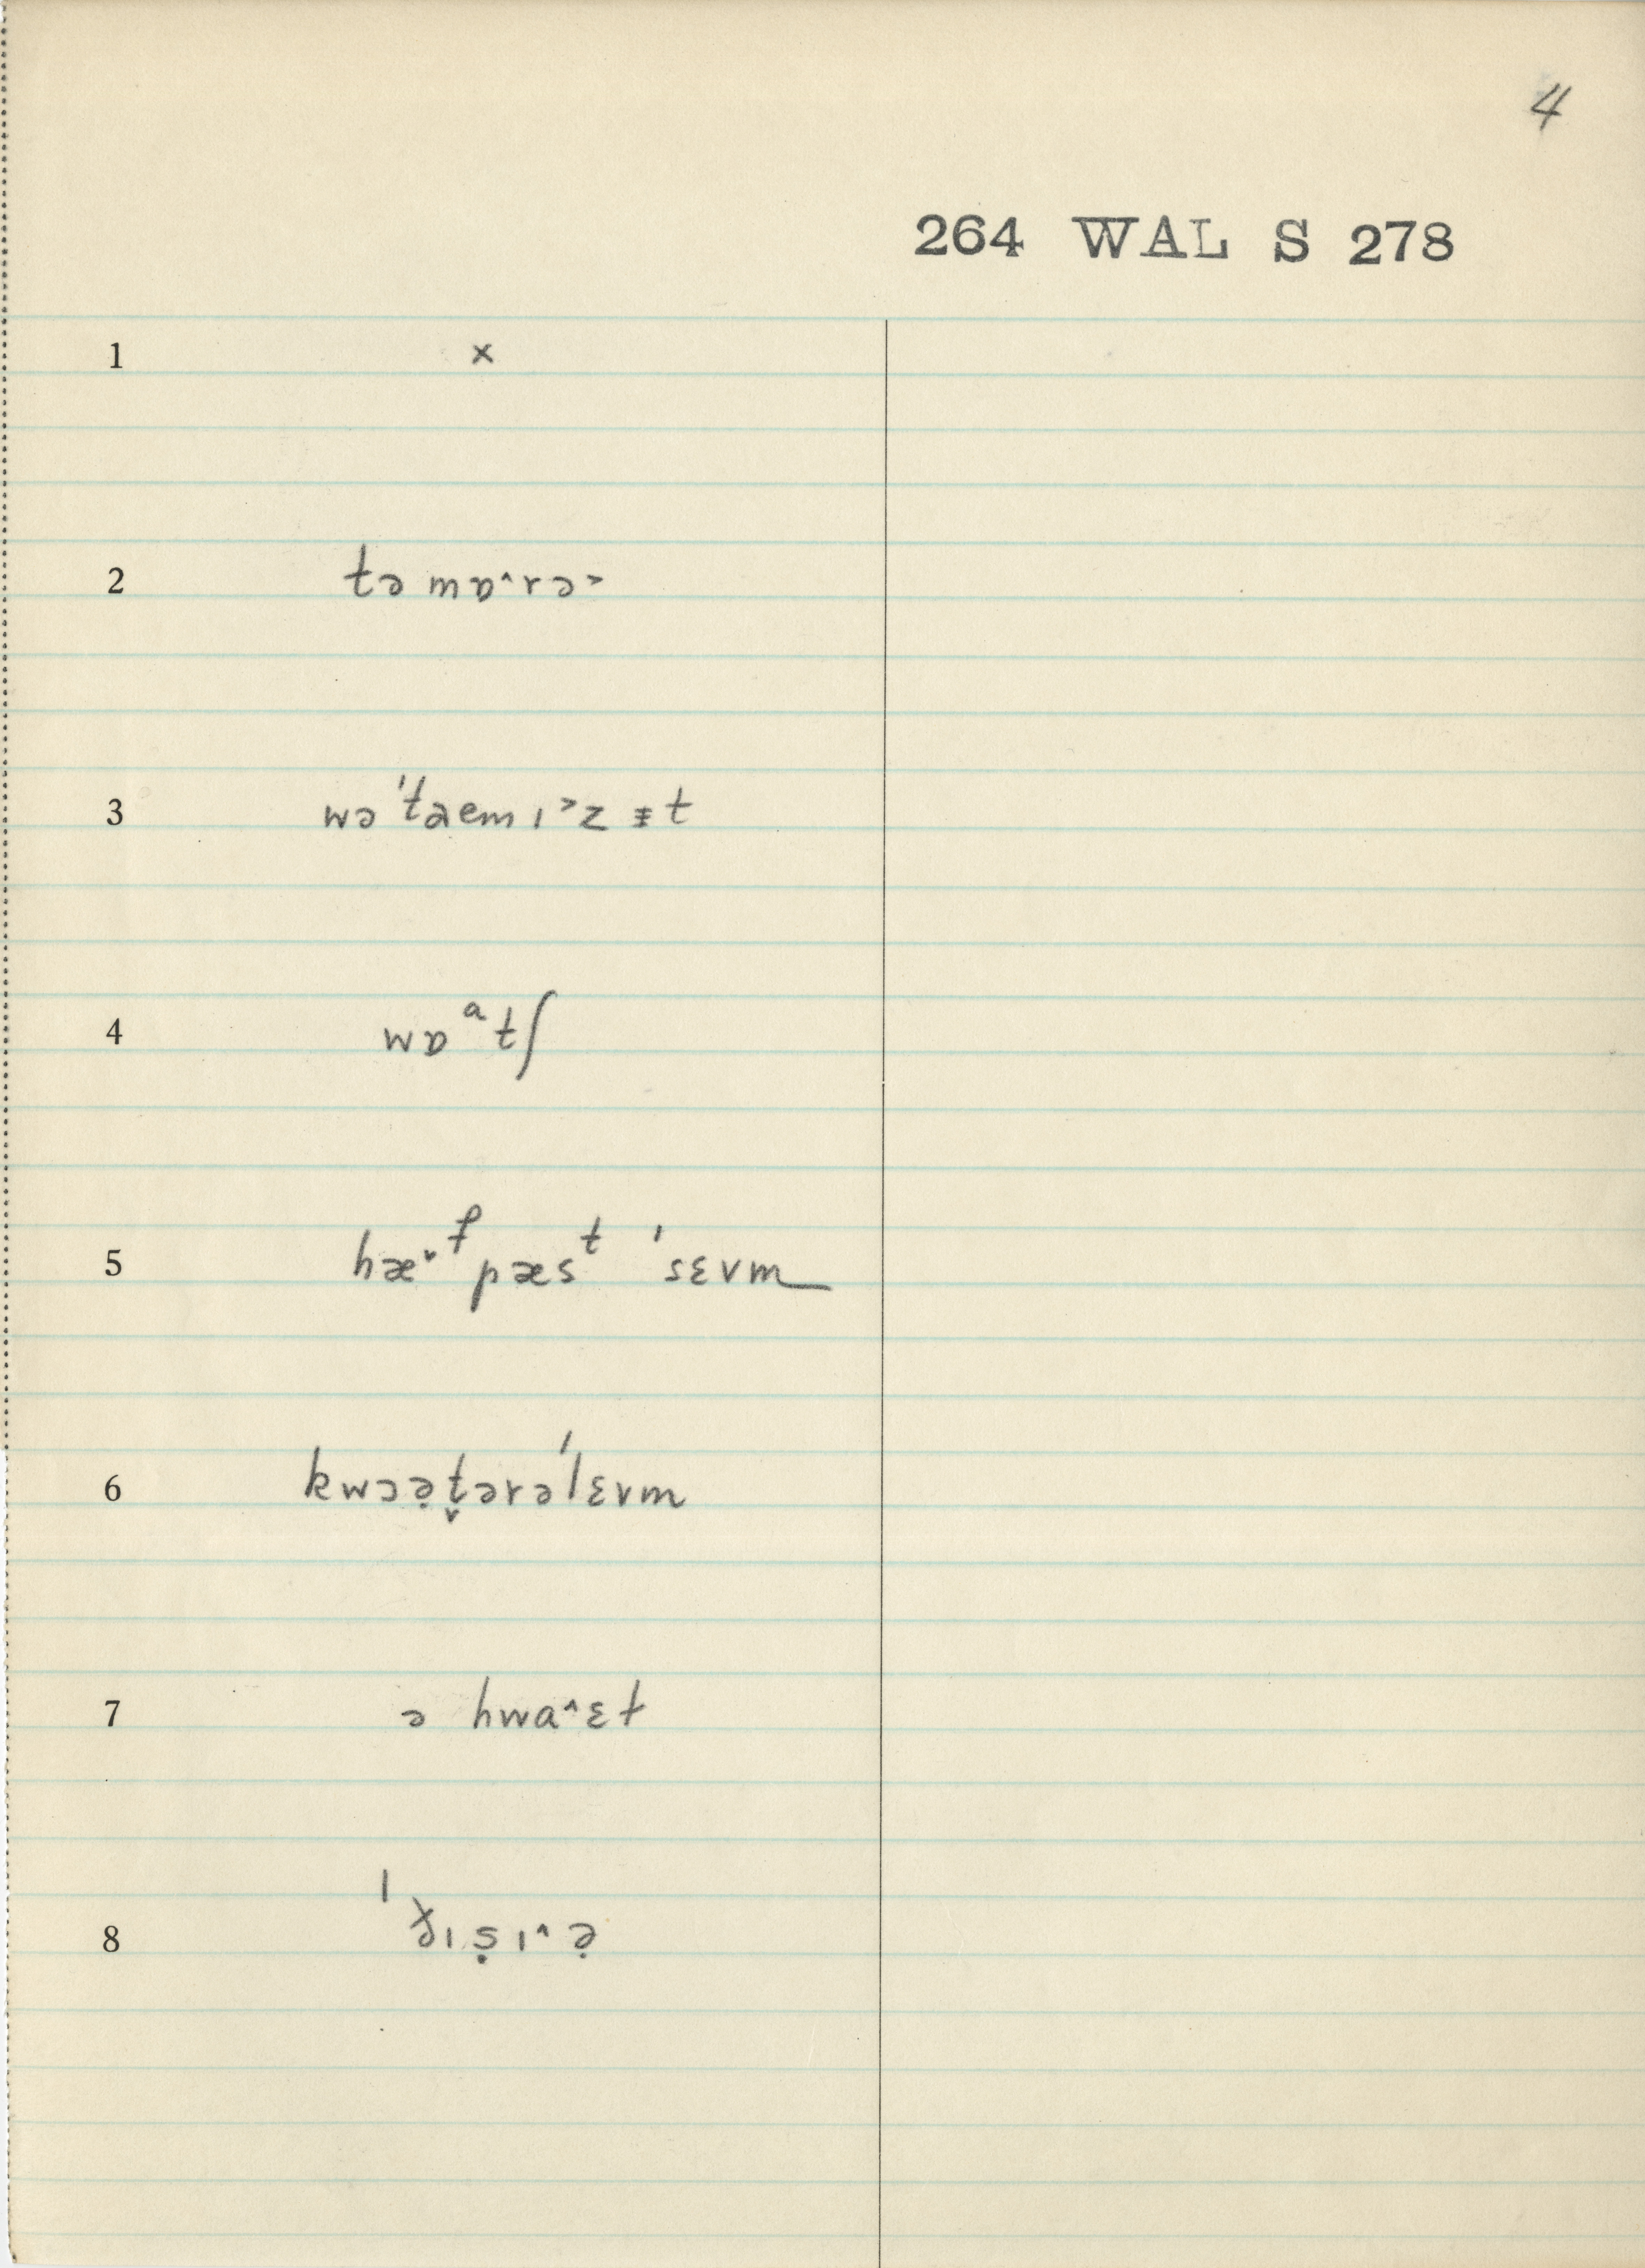 4
264 WAL S 278
1 ×
2 tə mɒ˄rə˃
3 wə ˈtaem ɪ˃z ᵻt
4 wɒᵃtʃ
5 hæ˅ᶠpæsᵗ ˈsɛvm
6 kwɔə̣t̬ərəˈlɛvm
7 ə hwa˄ɛt
8 ˈðɪṣɪ˄ə̣